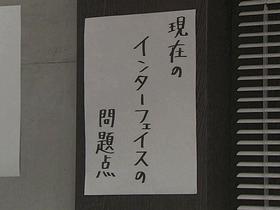 現在の
インターフェイスの
問題点